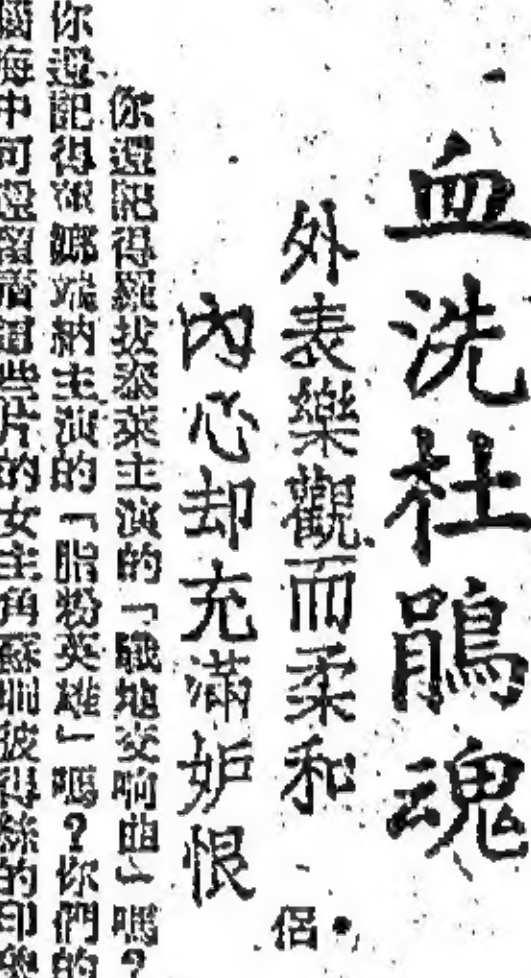 血洗杜鵑魂
外表樂觀而柔和
內心却充滿妒恨
侶
你還記得羅拔泰萊主演的「戰地交响曲」嗎？
你還記得蓮娜端納主演的「脂粉英雄」嗎？你們的
腦海中可還留着這些片的女主角蘇珊彼得絲的印象